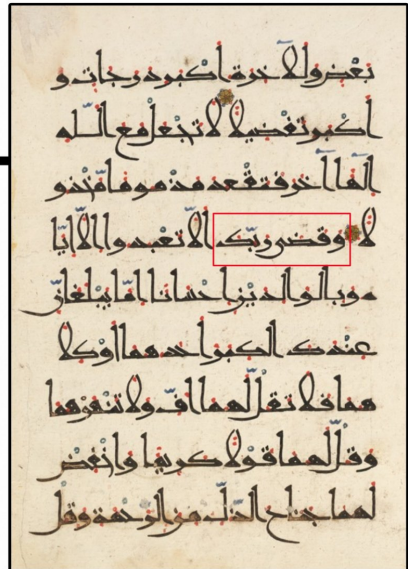 بَعْضٍ وَلَلْآخِرَةُ أَكْبَرُ دَرَجَاتٍ وَ
أَكْبَرُ تَفْضِيلًا لَا تَجْعَلْ مَعَ اللَّهِ
إِلَٰهًا آخَرَ فَتَقْعُدَ مَذْمُومًا مَخْذُو
لًا وَقَضَىٰ رَبُّكَ أَلَّا تَعْبُدُوا إِلَّا إِيَّا
هُ وَبِالْوَالِدَيْنِ إِحْسَانًا إِمَّا يَبْلُغَانِّ
عِنْدَكَ الْكِبَرَ أَحَدُهُمَا أَوْ كِلَا
هُمَا فَلَا تَقُلْ لَهُمَا أُفٍّ وَلَا تَنْهَرْهُمَا
وَقُلْ لَهُمَا قَوْلًا كَرِيمًا وَاخْفِضْ
لَهُمَا جَنَاحَ الذُّلِّ مِنَ الرَّحْمَةِ وَقُلْ